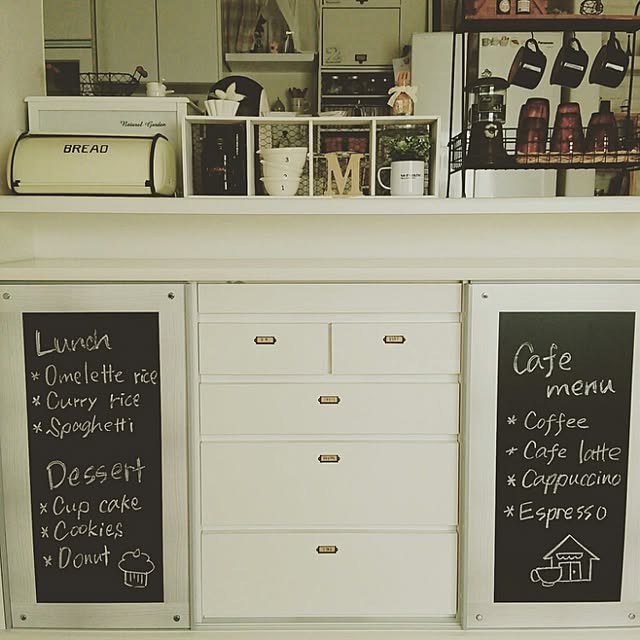 2
Natural Garden
BREAD
3
1
M
Lunch
* Omelette rice
* Curry rice
* Spaghetti
Dessert
* Cup cake
* Cookies
* Donut
Cafe
menu
* Coffee
* Cafe latte
* Cappuccino
* Espresso